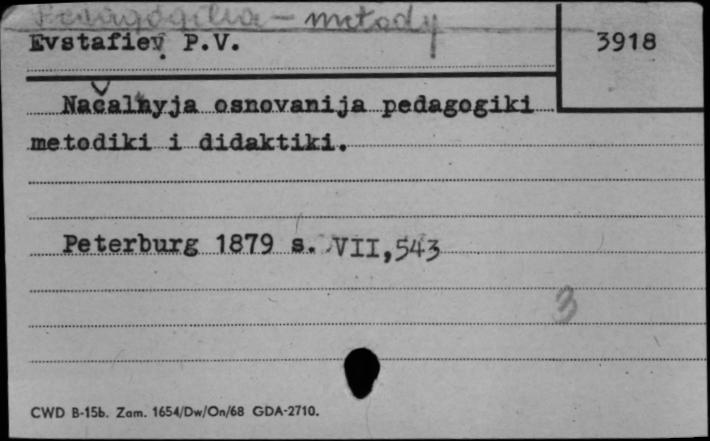 Pedagogika - metody
Evstafiev P.V.
3918
Načalnyja osnovanija pedagogiki
metodiki i didaktiki.
Peterburg 1879 s. VII,543
3
CWD B-15b. Zam. 1654/Dw/On/68 GDA-2710.